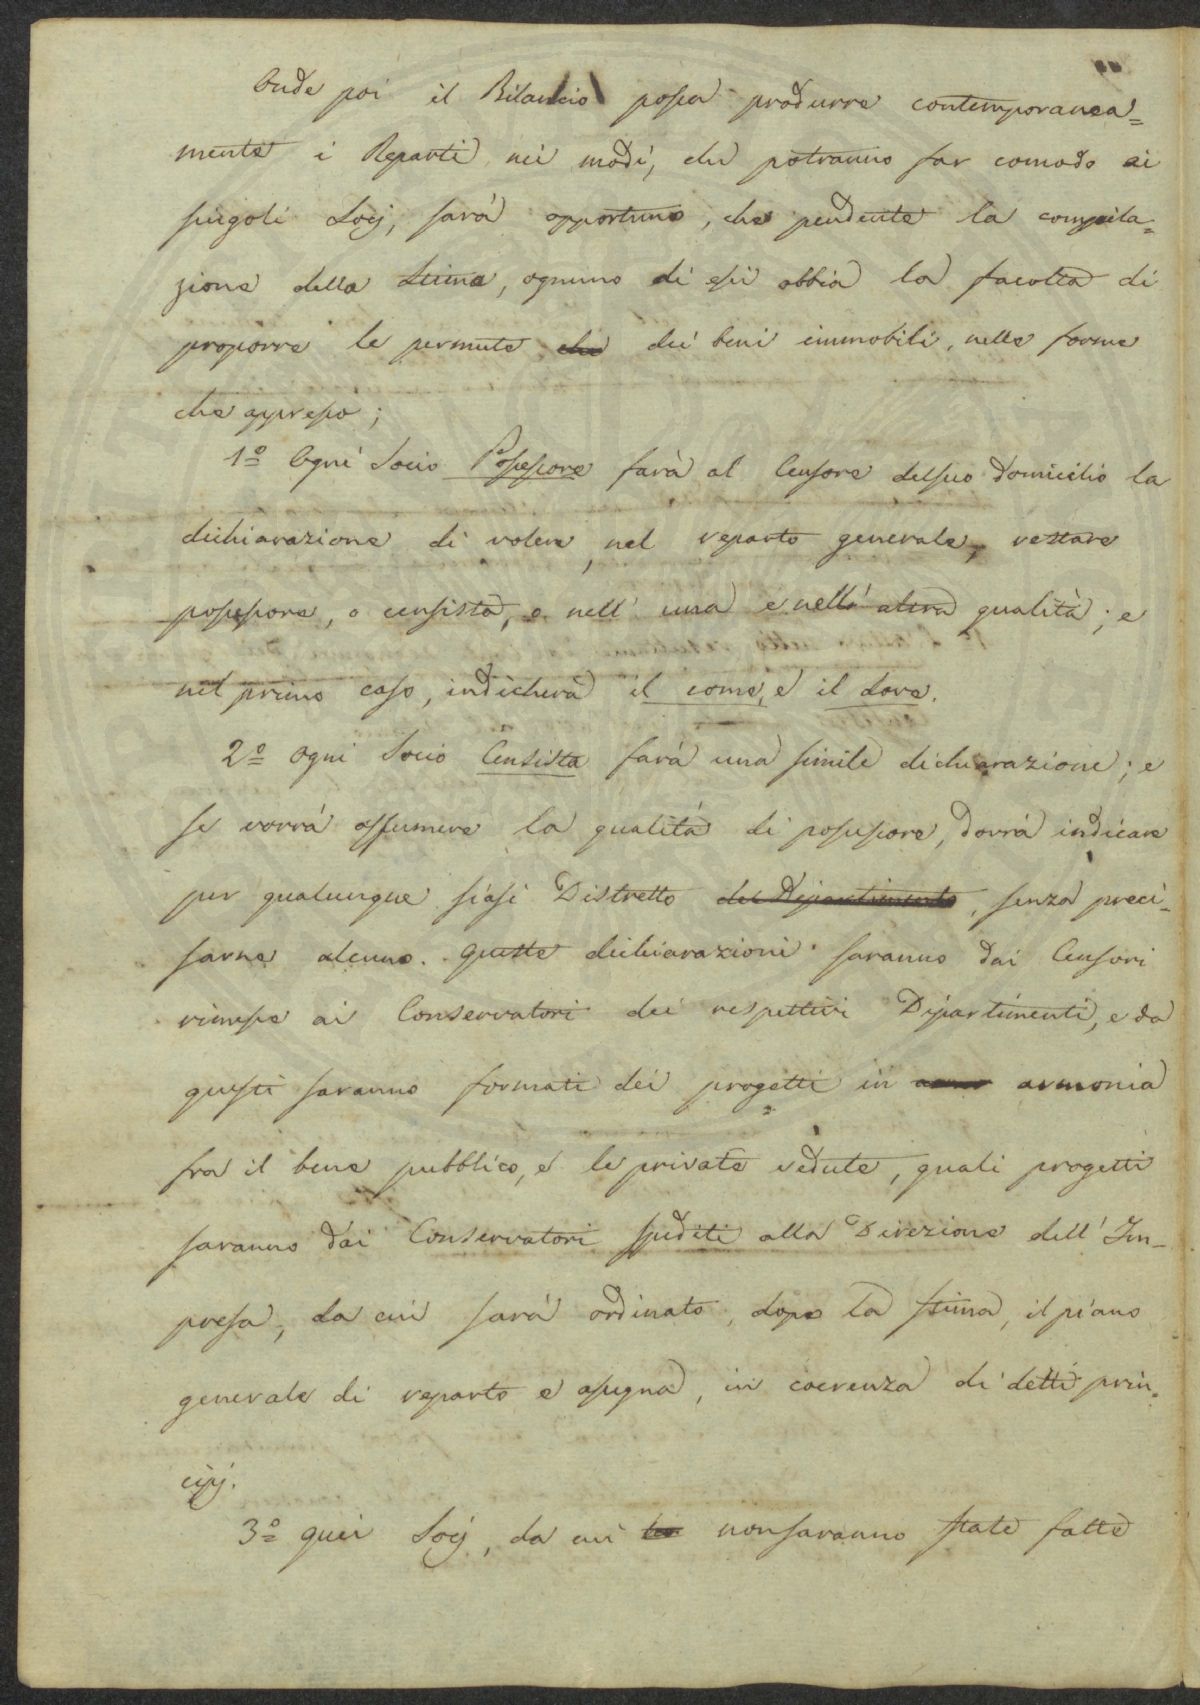 Onde poi il Bilancio possa produrre contemporanea=
mente i Reparti nei modi, che potranno far comodo ai
singoli Socj, sarà opportuno, che pendente la compila=
zione della Stima, ognuno di essi abbia la facoltà di
proporre le permute che dei beni immobili, nelle forme
che appresso;
1º Ogni Socio Possessore farà al Censore del suo domicilio la
dichiarazione di volere, nel reparto generale, restare
possessore, o censista, o nell' una e nell' altra qualità; e
nel primo caso, indicherà il come, e il dove.
2º Ogni Socio Censista farà una simile dichiarazione; e
se vorrà assumere la qualità di possessore, dovrà indicare
per qualunque siasi Distretto del Dipartimento, senza preci=
sarne alcuno. Queste dichiarazioni saranno dai Censori
rimesse ai Conservatori dei respettivi Dipartimenti, e da
questi saranno formati dei progetti in armonia
fra il bene pubblico, e le private vedute, quali progetti
saranno dai Conservatori spediti alla Direzione dell' Im=
presa, da cui sarà ordinato, dopo la stima, il piano
generale di reparto e assegna, in coerenza di detti prin=
cipj.
3º Quei Socj, da cui non saranno state fatte